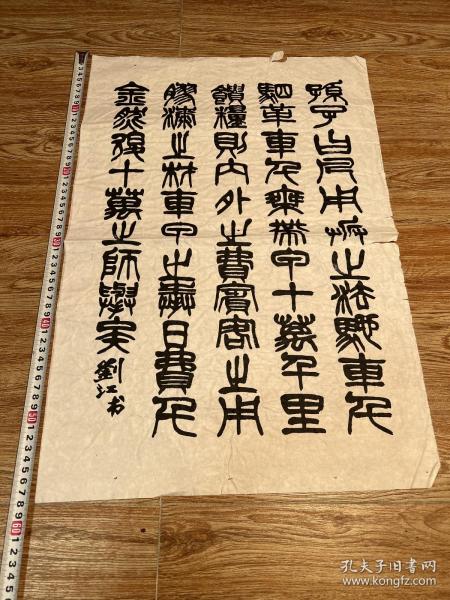 孫子曰凡用兵之法馳車千
駟革車千乘帶甲十萬千里
饋糧則内外之費賓客之用
膠漆之材車甲之奉日費千
金然後十萬之師舉矣
劉江书
孔夫子旧书网
www.kongfz.com